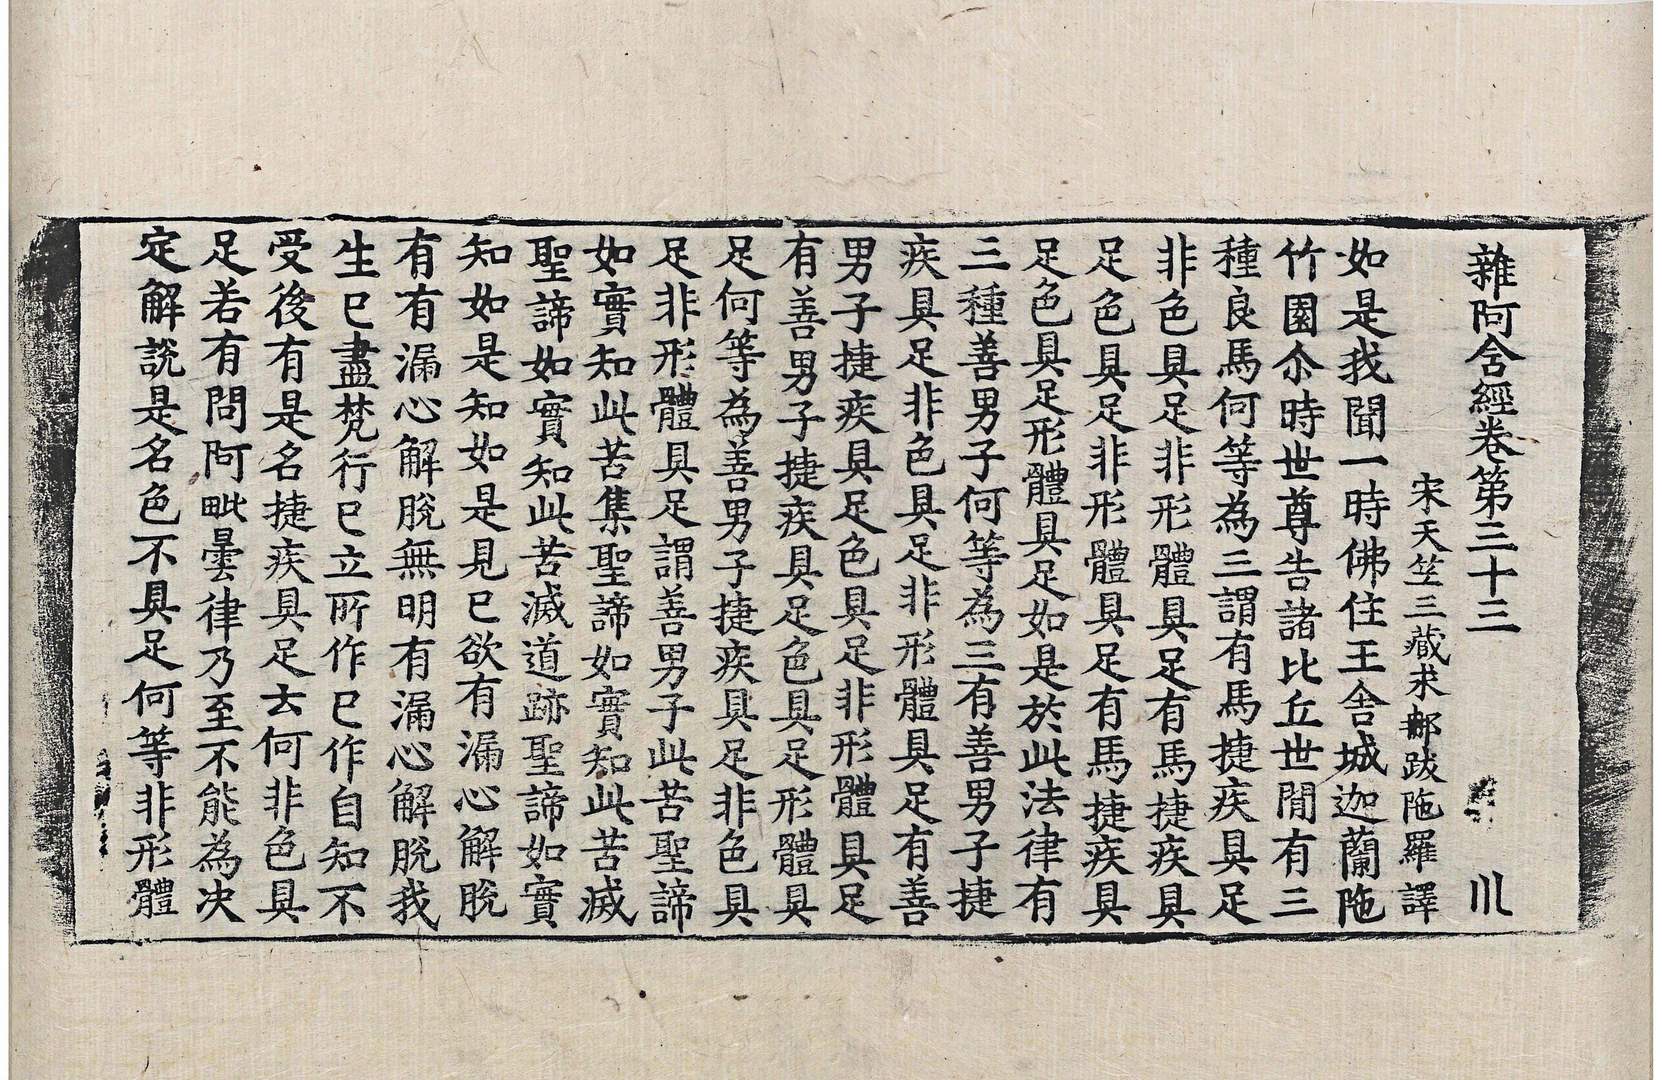 雜阿含經卷第三十三 川
宋天竺三藏求那跋陁羅譯
如是我聞一時佛住王舍城迦蘭陁
竹園尒時世尊告諸比丘世閒有三
種良馬何等為三謂有馬捷疾具足
非色具足非形體具足有馬捷疾具
足色具足非形體具足有馬捷疾具
足色具足形體具足如是於此法律有
三種善男子何等為三有善男子捷
疾具足非色具足非形體具足有善
男子捷疾具足色具足非形體具足
有善男子捷疾具足色具足形體具
足何等為善男子捷疾具足非色具
足非形體具足謂善男子此苦聖諦
如實知此苦集聖諦如實知此苦滅
聖諦如實知此苦滅道跡聖諦如實
知如是知如是見已欲有漏心解脫
有有漏心解脫無明有漏心解脫我
生已盡梵行已立所作已作自知不
受後有是名捷疾具足云何非色具
足若有問阿毗曇律乃至不能為决
定解說是名色不具足何等非形體